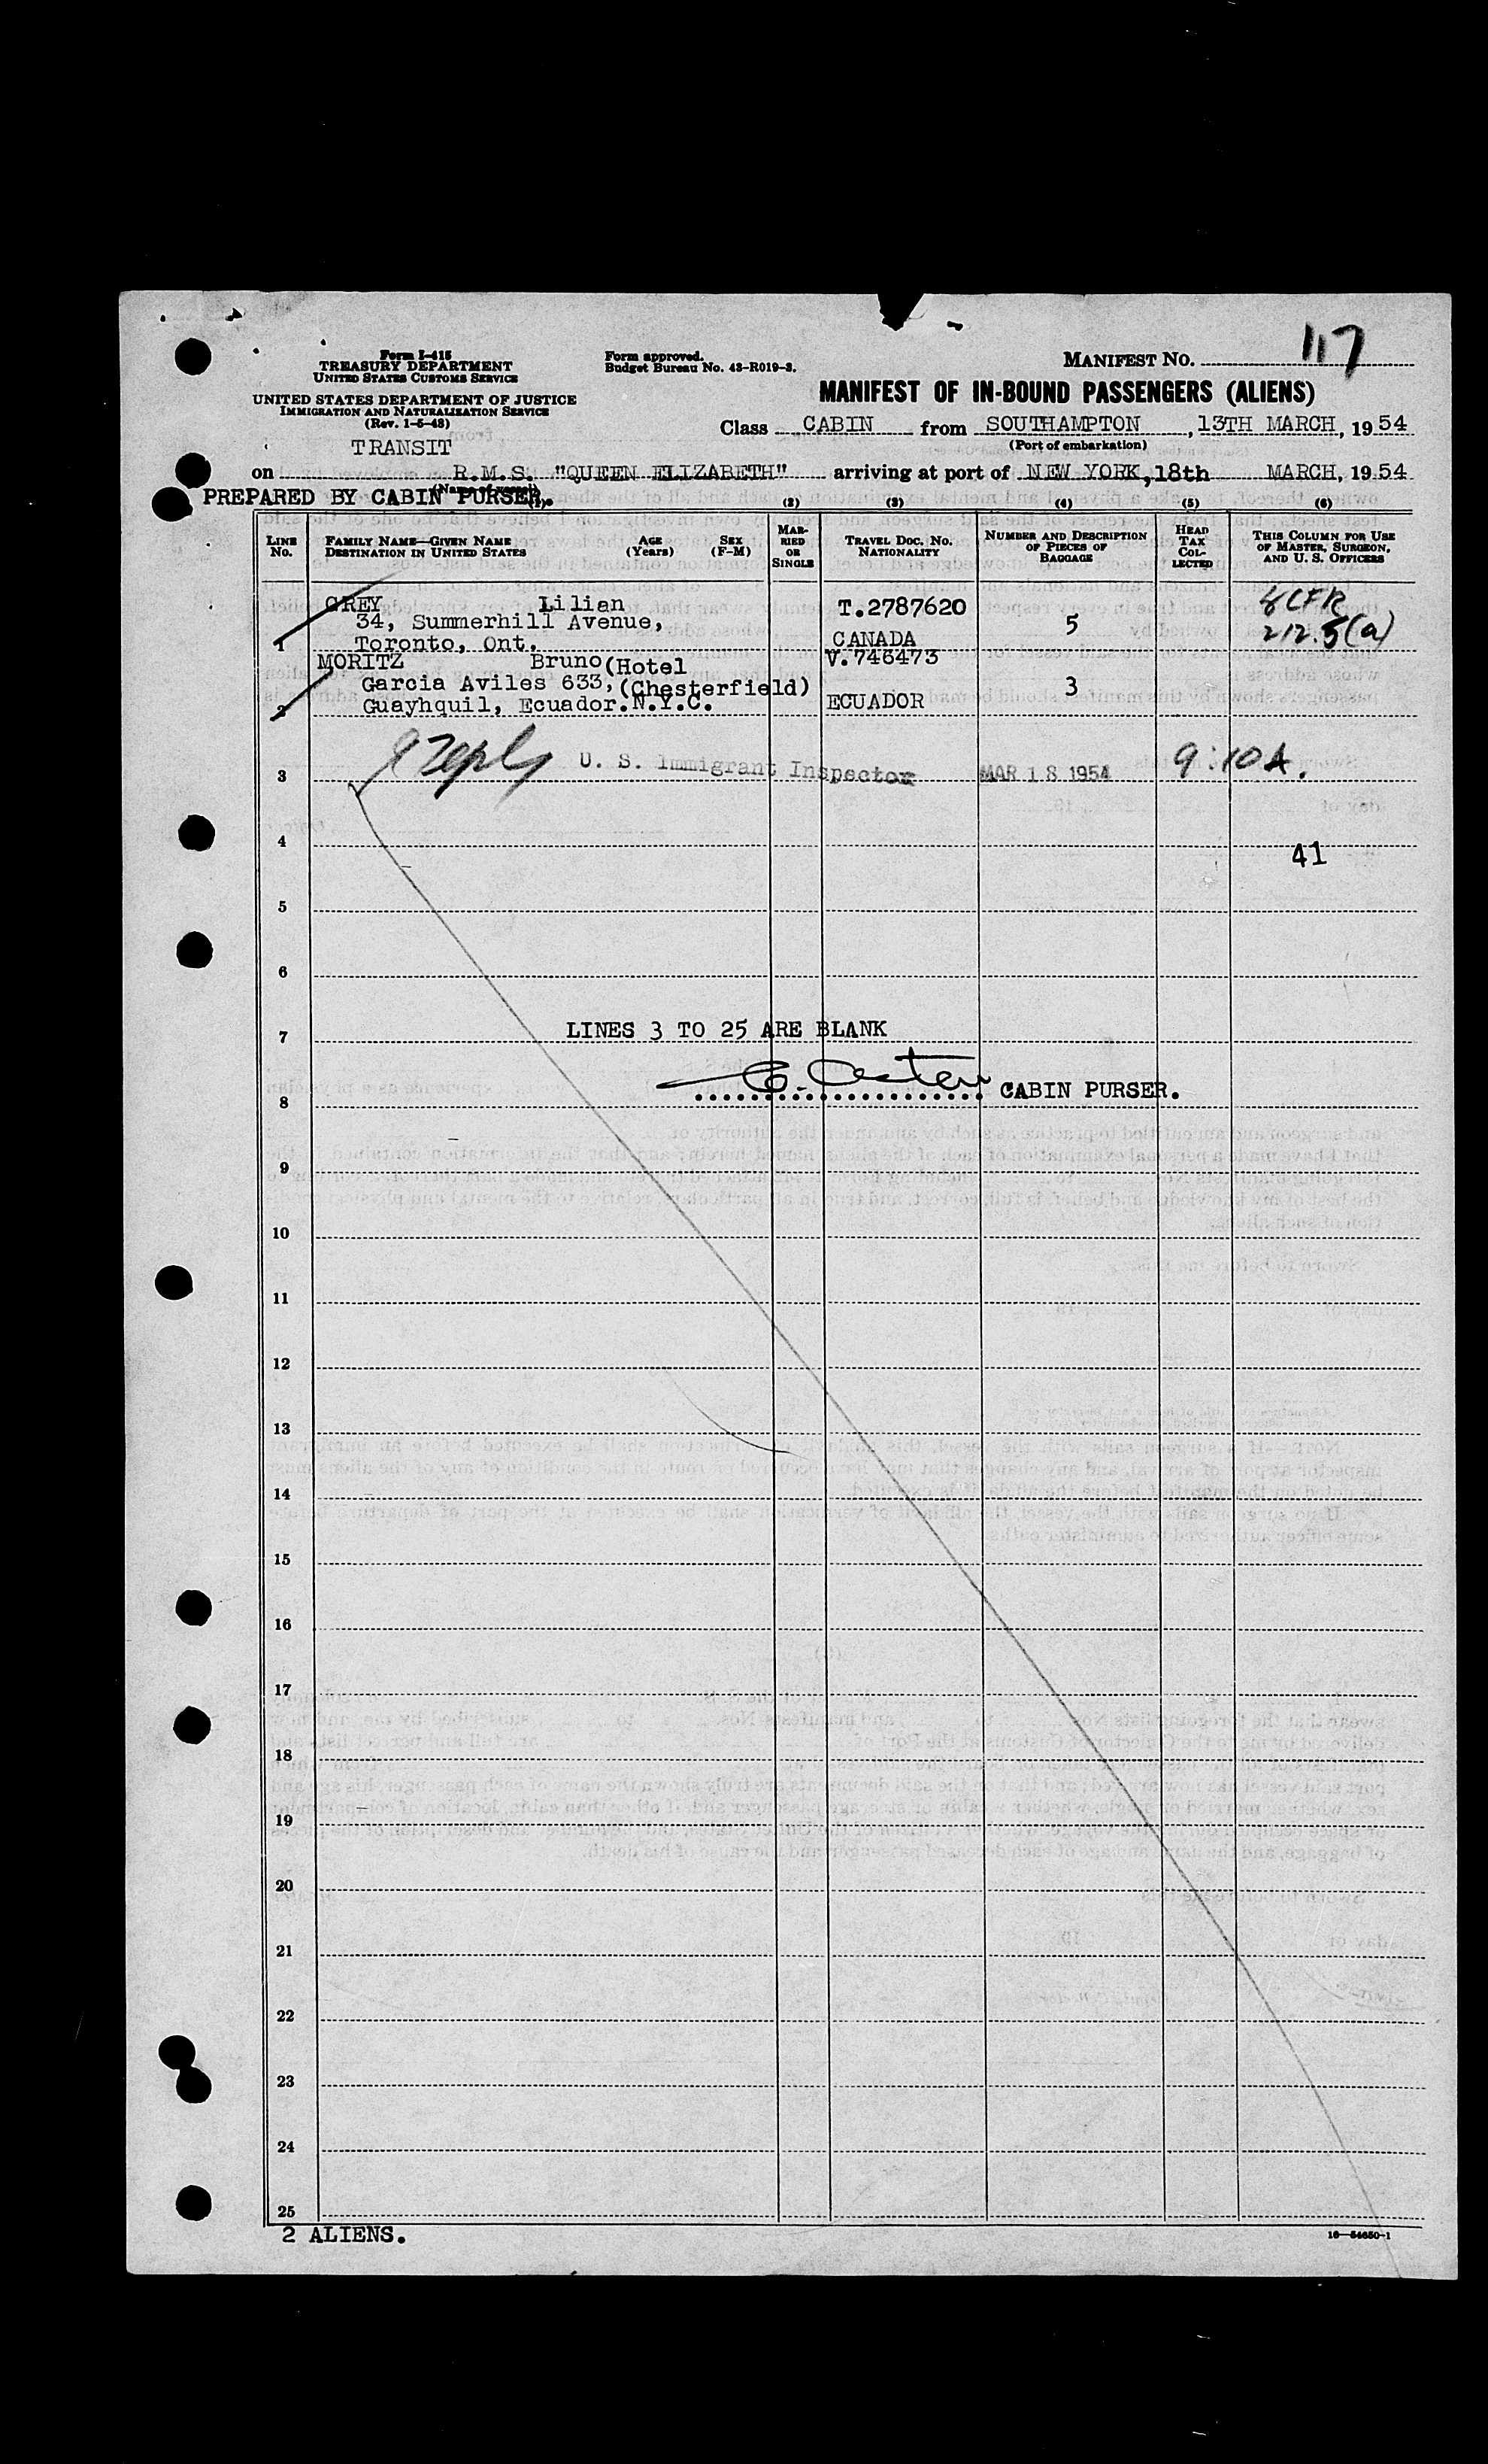 Form I-415
TREASURY DEPARTMENT
UNITED STATES CUSTOMS SERVICE
UNITED STATES DEPARTMENT OF JUSTICE
IMMIGRATION AND NATURALIZATION SERVICE
(Rev. 1-5-48)
Form approved.
Budget Bureau No. 43-R019-3.
MANIFEST NO. 117
MANIFEST OF IN-BOUND PASSENGERS (ALIENS)
Class CABIN from SOUTHAMPTON, 13TH MARCH, 1954
(Port of embarkation)
TRANSIT
on R.M.S. "QUEEN ELIZABETH" arriving at port of NEW YORK, 18th MARCH, 1954
(Name of vessel)
PREPARED BY CABIN PURSER.
(1) (2) (3) (4) (5) (6)
LINE No. FAMILY NAME—GIVEN NAME DESTINATION IN UNITED STATES AGE (Years) SEX (F-M) MARRIED OR SINGLE TRAVEL DOC. NO. NATIONALITY NUMBER AND DESCRIPTION OF PIECES OF BAGGAGE HEAD TAX COLLECTED THIS COLUMN FOR USE OF MASTER, SURGEON, AND U. S. OFFICERS
GREY Lilian T.2787620 8 CFR
34, Summerhill Avenue, 5 212.5(a)
1 Toronto, Ont. CANADA
MORITZ Bruno (Hotel V.746473
Garcia Aviles 633, (Chesterfield) 3
2 Guayhquil, Ecuador. N.Y.C. ECUADOR
3 U. S. Immigrant Inspector MAR 18 1954 9:10 A.
4 41
5
6
7 LINES 3 TO 25 ARE BLANK
8 CABIN PURSER.
9
10
11
12
13
14
15
16
17
18
19
20
21
22
23
24
25
2 ALIENS.
16—54650-1